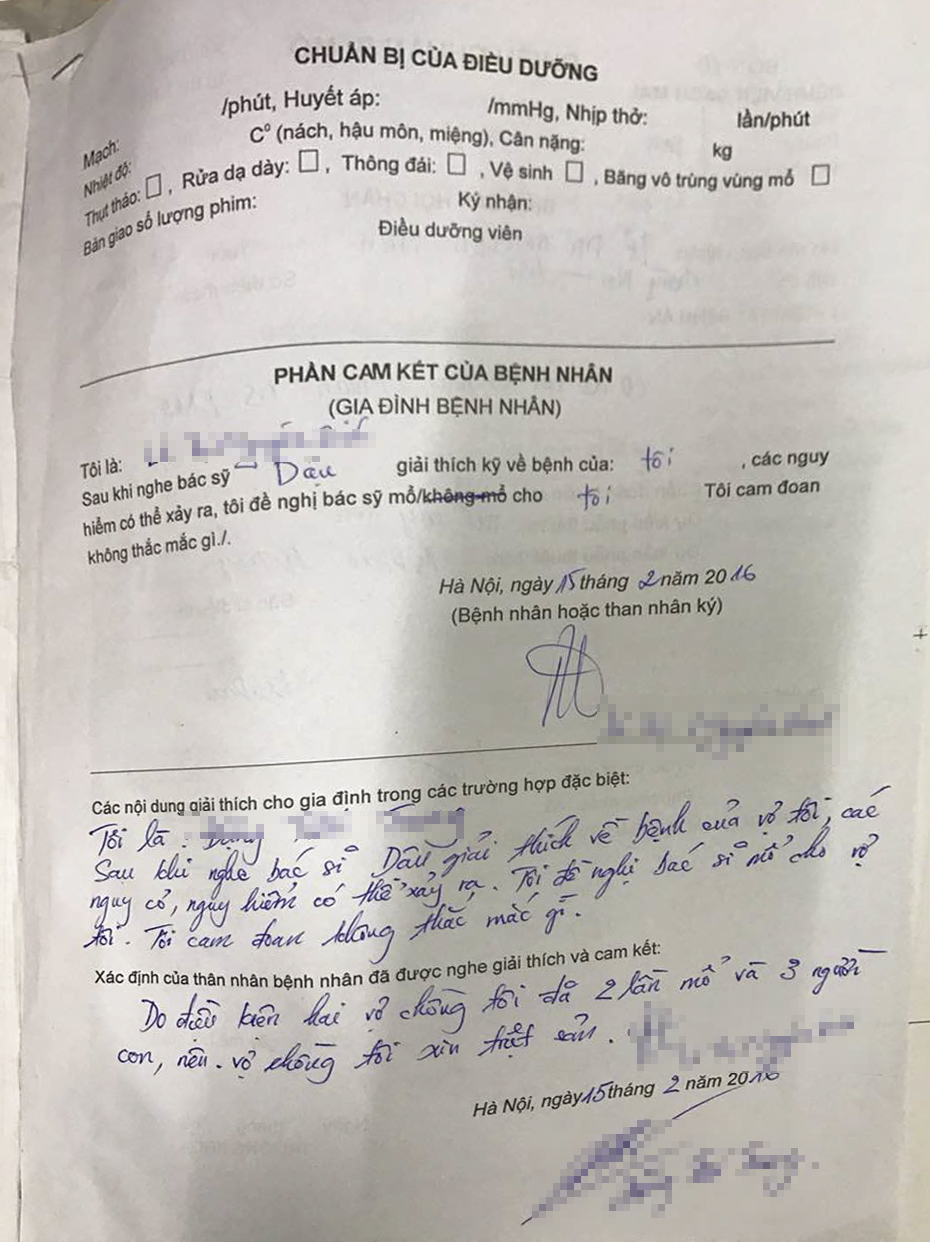 CHUẨN BỊ CỦA ĐIỀU DƯỠNG
Mạch: /phút, Huyết áp: /mmHg, Nhịp thở: lần/phút
Nhiệt độ: C° (nách, hậu môn, miệng), Cân nặng: kg
Thụt tháo: , Rửa dạ dày: , Thông đái: , Vệ sinh , Băng vô trùng vùng mổ
Bàn giao số lượng phim: Ký nhận:
Điều dưỡng viên
PHẦN CAM KẾT CỦA BỆNH NHÂN
(GIA ĐÌNH BỆNH NHÂN)
Tôi là:
Sau khi nghe bác sỹ Dậu giải thích kỹ về bệnh của: tôi , các nguy
hiểm có thể xảy ra, tôi đề nghị bác sỹ mổ/không mổ cho tôi Tôi cam đoan
không thắc mắc gì./.
Hà Nội, ngày 15 tháng 2 năm 2016
(Bệnh nhân hoặc than nhân ký)
Các nội dung giải thích cho gia định trong các trường hợp đặc biệt:
Tôi là :
Sau khi nghe bác sĩ Dậu giải thích về bệnh của vợ tôi, các
nguy cơ, nguy hiểm có thể xảy ra. Tôi đề nghị bác sĩ mổ cho vợ
tôi. Tôi cam đoan không thắc mắc gì.
Xác định của thân nhân bệnh nhân đã được nghe giải thích và cam kết:
Do điều kiện hai vợ chồng tôi đã 2 lần mổ và 3 người
con, nên vợ chồng tôi xin triệt sản.
Hà Nội, ngày 15 tháng 2 năm 2016